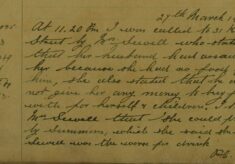 27th March 19
At 11.20 Pm I was called to 31 K
Street by Mrs Sewell who state
that her husband had assau
her because she had no food f
him, she also stated that he d
not give her any money to buy f
with for herself & children, I
Mrs Sewell that she could p
by Summons, which she said she
Sewell was the worse for drink